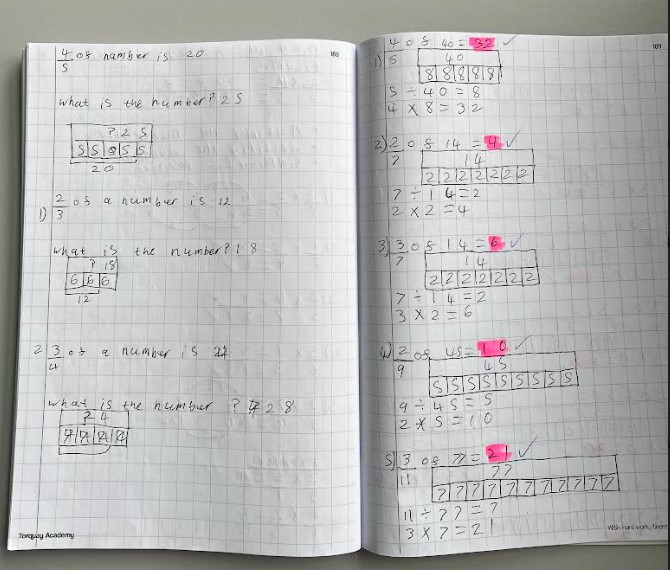 4/5 of number is 20
186
what is the number? 25
? 25
5 5 5 5 5
20
1) 2/3 of a number is 12
what is the number? 18
? 18
6 6 6
12
2 3/4 of a number is
what is the number ? 28
?
Torquay Academy
1) 4/5 of 40 = 32 ✓
40
8 8 8 8 8
5 ÷ 40 = 8
4 × 8 = 32
2) 2/7 of 14 = 4 ✓
14
2 2 2 2 2 2 2
7 ÷ 14 = 2
2 × 2 = 4
3) 3/7 of 14 = 6 ✓
14
2 2 2 2 2 2 2
7 ÷ 14 = 2
3 × 2 = 6
4) 2/9 of 45 = 10 ✓
45
5 5 5 5 5 5 5 5 5
9 ÷ 45 = 5
2 × 5 = 10
5) 3/11 of 77 = 21 ✓
77
7 7 7 7 7 7 7 7 7 7 7
11 ÷ 77 = 7
3 × 7 = 21
With hard work, there